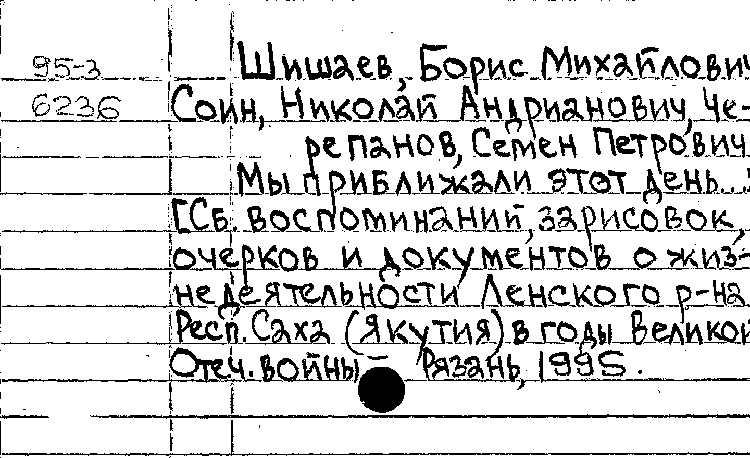 95-3 Шишаев, Борис Михайлович
6236 Соин, Николай Андрианович, Че-
репанов, Семен Петрович
Мы приближали этот день...:
[Сб. воспоминаний, зарисовок,
очерков и документов о жиз-
недеятельности Ленского р-на
Респ. Саха (Якутия) в годы Великой
Отеч. войны – Рязань, 1995.